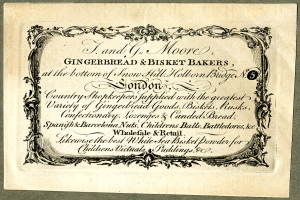 J. and G. Moore,
GINGERBREAD & BISKET BAKERS,
at the bottom of Snow Hill, Holborn Bridge, N. 5
London.
Country Shopkeepers supplied with the greatest
Variety of Gingerbread Goods, Biskits, Rusks,
Confectionary, Lozenges & Candied Bread,
Spanish & Barcelona Nuts, Childrens Balls, Battledores, &c.
Wholesale & Retail.
Likewise the best White Sea Bisket Powder for
Childrens Victuals, Puddings, &c.